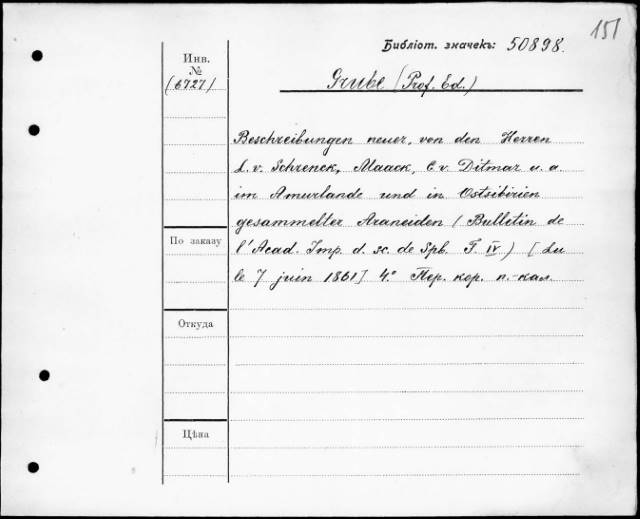 151
Библіот. значекъ: 50898.
Инв.
№
(6727)
Grube (Prof. Ed.)
Beschreibungen neuer, von den Herren
L. v. Schrenck, Maack, C. v. Ditmar u. a.
im Amurlande und in Ostsibirien
gesammelter Araneiden (Bulletin de
l'Acad. Imp. d. sc. de Spb. T. IV) [Lu
le 7 juin 1861] 4º. Пер. кор. п.-кал.
По заказу
Откуда
Цѣна